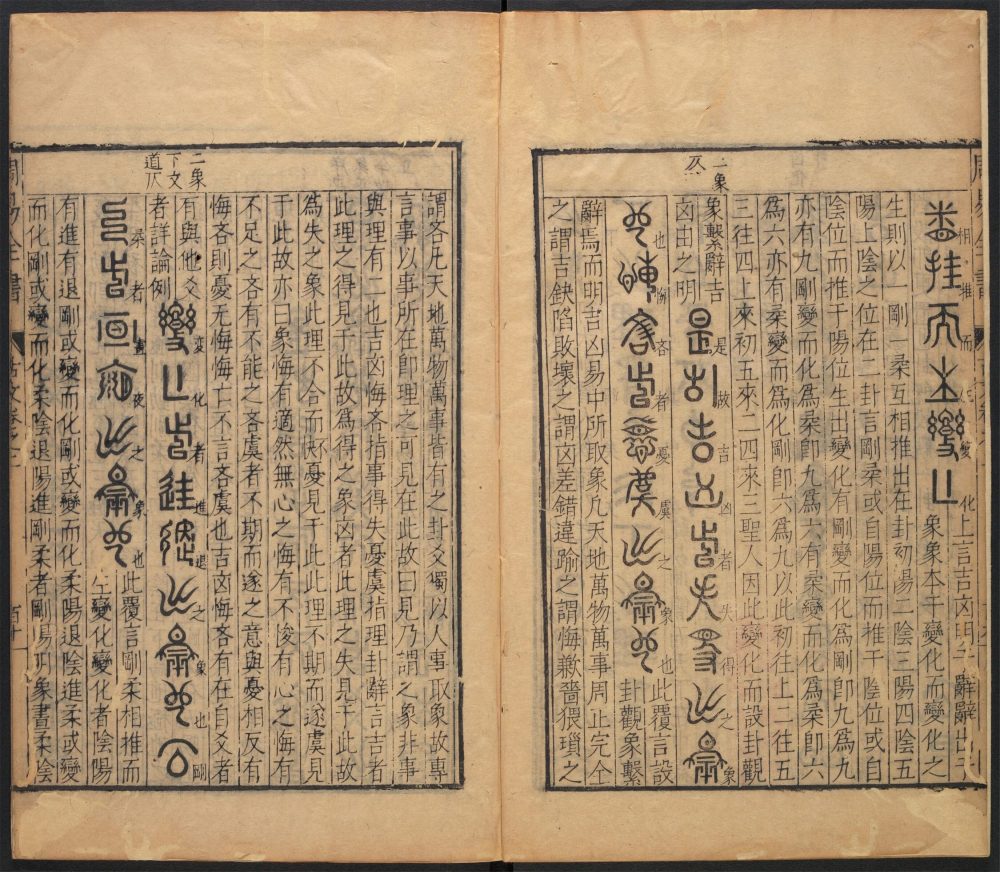 柔相推而生變化
上言吉凶明于辭辭出于
象象本于變化而變化之
生則以一剛一柔互相推出在卦初陽二陰三陽四陰五
陽上陰之位在二卦言剛柔或自陽位而推于陰位或自
陰位而推于陽位生出變化有剛變而化為剛卽九為九
亦有九剛變而化為柔卽九為六有柔變而化為柔卽六
為六亦有柔變而為化剛卽六為九以此初往上二往五
三往四上來初五來二四來三聖人因此變化而設卦觀
象繫辭吉
凶由之明
是故吉凶者失得之象
也悔吝者憂虞之象也
此覆言設
卦觀象繫
辭焉而明吉凶易中所取象凡天地萬物萬事周正完全
之謂吉缺陷敗壞之謂凶差錯違踰之謂悔歉嗇猥瑣之
二象
下文
謂吝凡天地萬物萬事皆有之卦爻獨以人事取象故專
言事以事所在卽理之可見在此故曰見乃謂之象非事
與理有二也吉凶悔吝指事得失憂虞指理卦辭言吉者
此理之得見于此故為得之象凶者此理之失見于此故
為失之象此理不合而憂見于此此理不期而遂虞見
于此故亦曰象悔有適然無心之悔有不俊有心之悔有
不足之吝有不能之吝虞者不期而遂之意與憂相反有
悔吝則憂无悔悔亡不言吝虞也吉凶悔吝有在自爻者
有與他爻
者詳論例
變化者進退之象也剛
柔者晝夜之象也
此覆言剛柔相推而
生變化變化者陰陽
有進有退剛或變而化剛或變而化柔陽退陰進柔或變
而化剛或變而化柔陰退陽進剛柔者剛陽明象晝柔陰